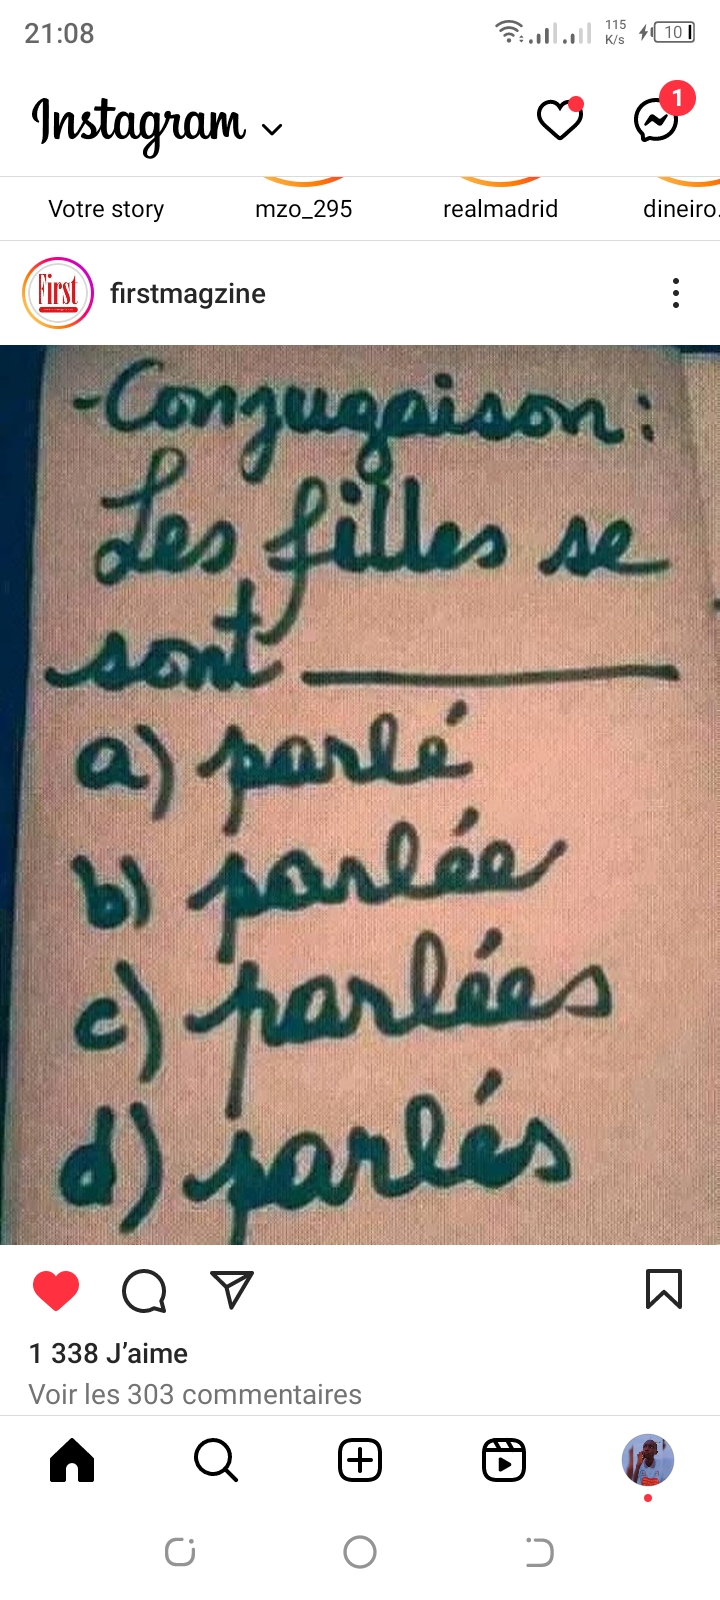 21:08
115
K/s
10
Instagram
1
Votre story
mzo_295
realmadrid
dineiro.
First
firstmagzine
-Conjugaison:
Les filles se
sont ________
a) parlé
b) parlée
c) parlées
d) parlés
1 338 J’aime
Voir les 303 commentaires